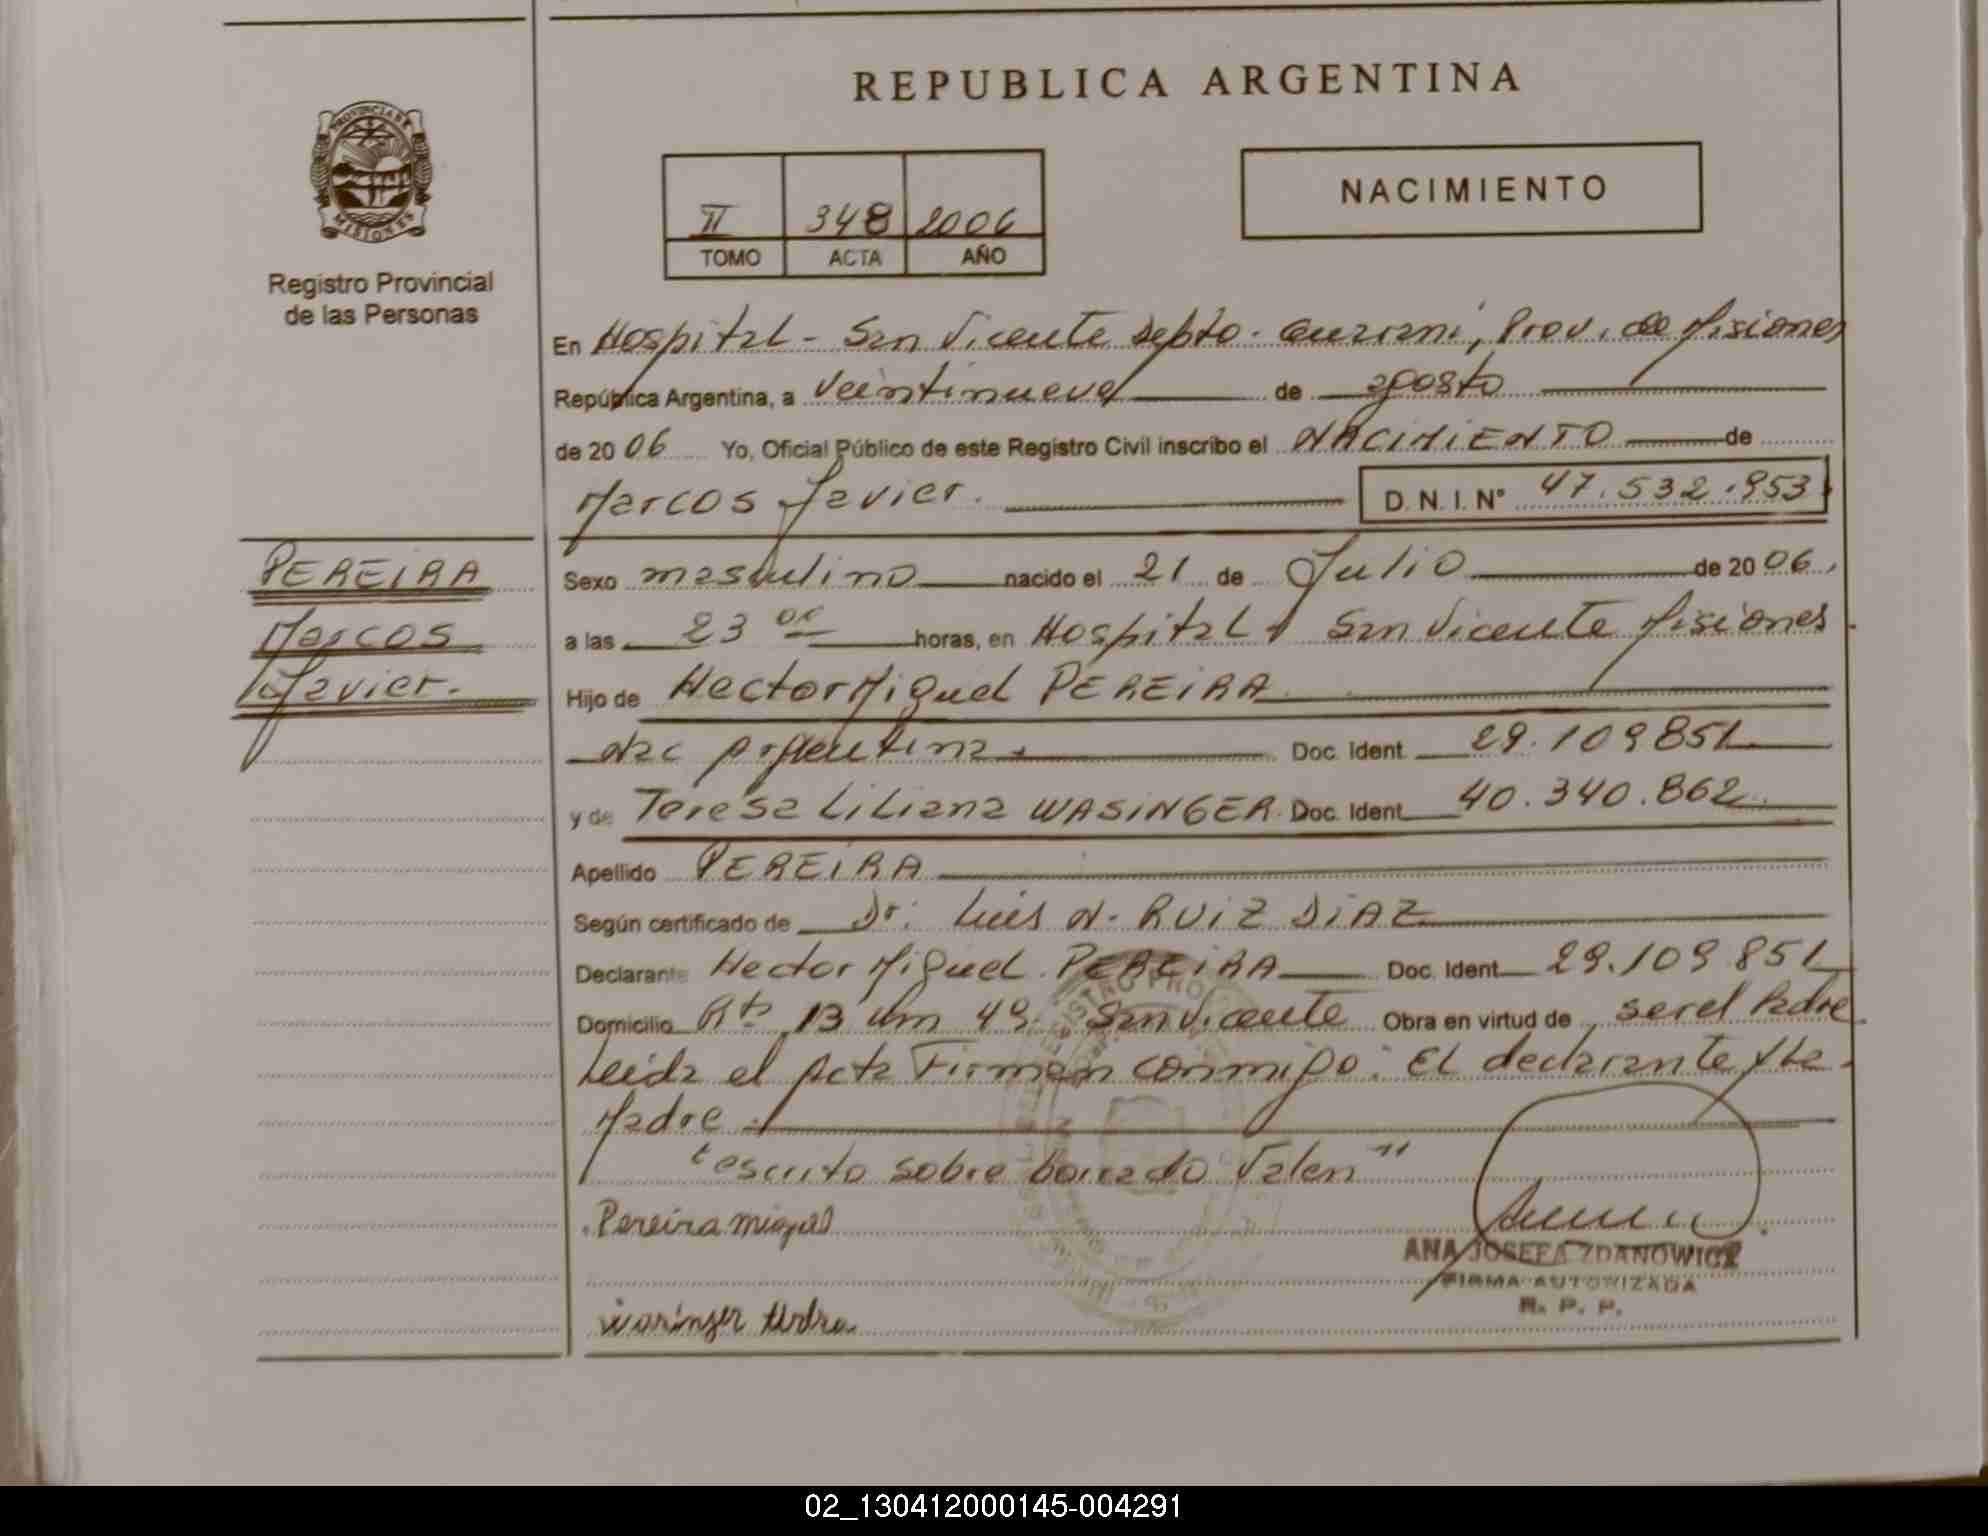 REPUBLICA ARGENTINA
PROVINCIA DE
MISIONES
Registro Provincial
de las Personas
II 348 2006
TOMO ACTA AÑO
NACIMIENTO
En Hospital - San Vicente Depto. Guarani, Prov. de Misiones
República Argentina, a Veintinueve de agosto
de 2006 Yo, Oficial Público de este Registro Civil inscribo el NACIMIENTO de
Marcos Javier. D. N. I. N° 47.532.953
PEREIRA
Marcos
Javier.
Sexo masculino nacido el 21 de Julio de 2006,
a las 23 oo horas, en Hospital San Vicente Misiones
Hijo de Hector Miguel PEREIRA
Nac Argentina Doc. Ident. 29.109851
y de Teresa Liliana WASINGER Doc. Ident. 40.340.862
Apellido PEREIRA
Según certificado de Dr. Luis N. RUIZ DIAZ
Declarante Hector Miguel PEREIRA Doc. Ident. 29.109.851
Domicilio Rta 13 km 49 San Vicente Obra en virtud de ser el Padre
Leida el Acta Firman conmigo: El declarante y la
Madre.
"escrito sobre borrado Valen"
Pereira Miguel
ANA JOSEFA ZDANOWICZ
FIRMA AUTORIZADA
R. P. P.
02_130412000145-004291